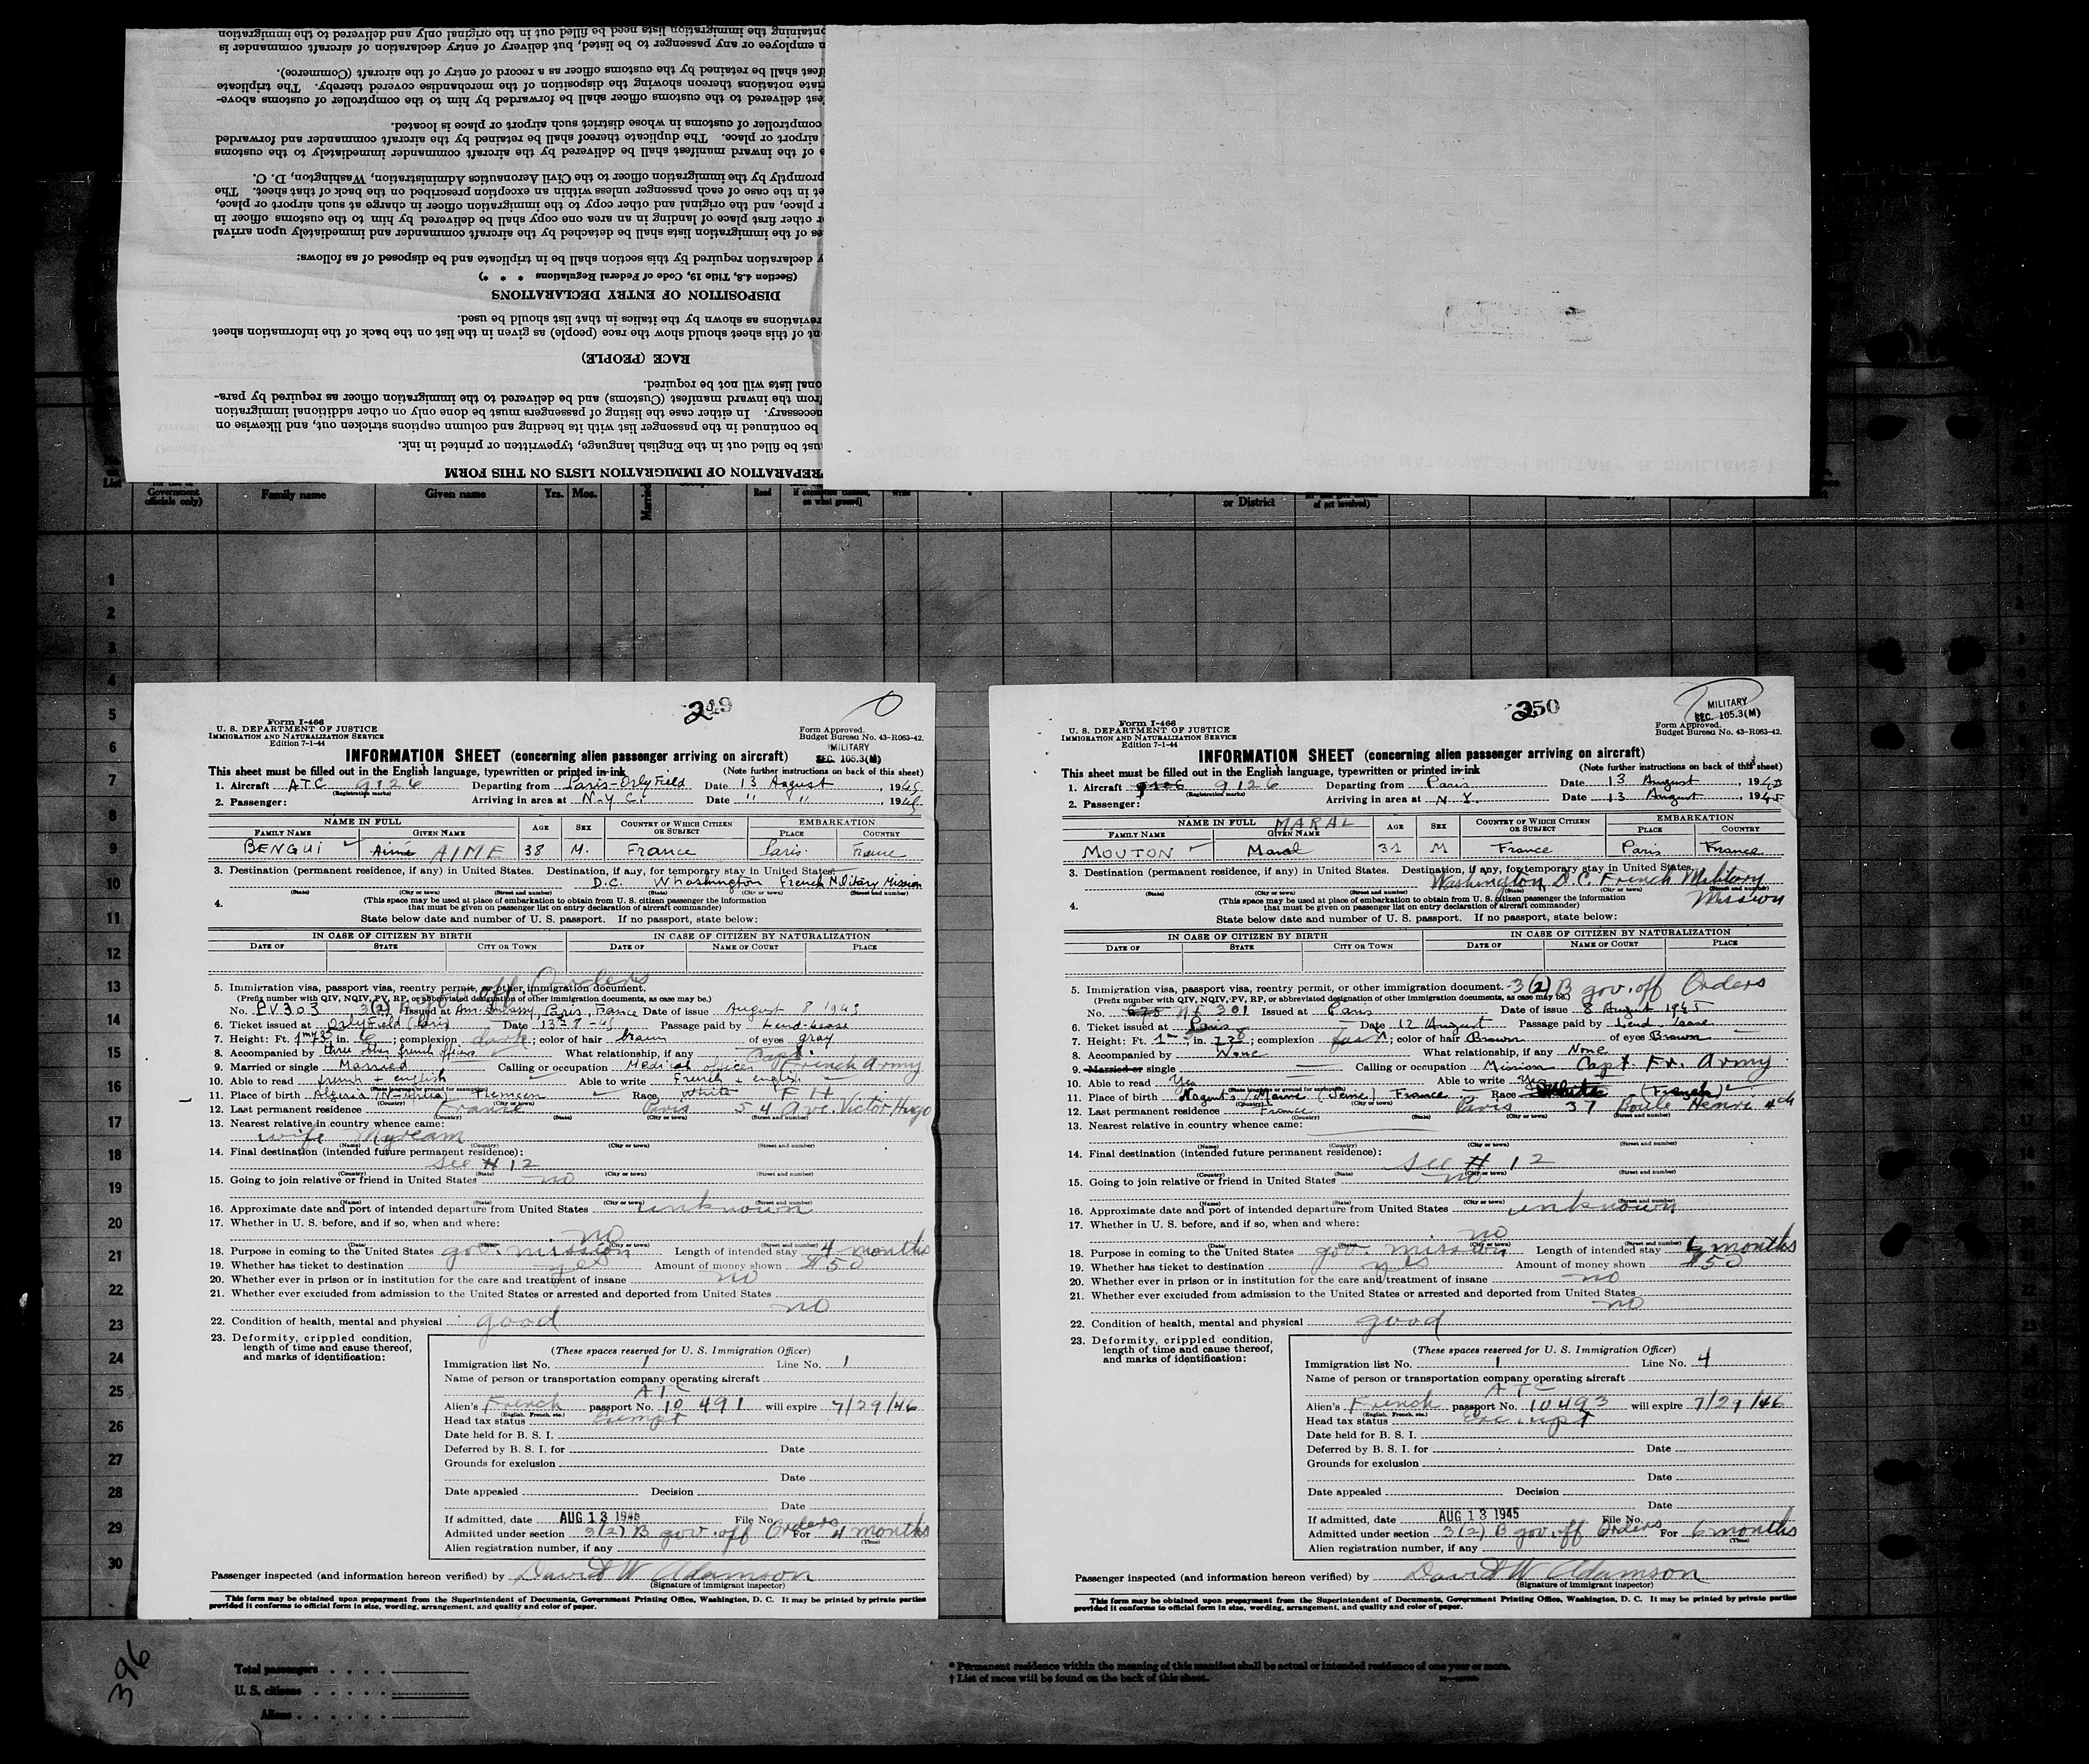 ontaining the immigration lists need be filled out in the original only and delivered to the immigration
n employee or any passenger to be listed, but delivery of entry declaration of aircraft commander is
fest shall be retained by the customs officer as a record of entry of the aircraft (Commerce).
riate notations thereon showing the disposition of the merchandise covered thereby. The triplicate
fest delivered to the customs officer shall be forwarded by him to the comptroller of customs above-
comptroller of customs in whose district such airport or place is located.
airport or place. The duplicate thereof shall be retained by the aircraft commander and forwarded
e of the inward manifest shall be delivered by the aircraft commander immediately to the customs
promptly by the immigration officer to the Civil Aeronautics Administration, Washington, D. C.
et in the case of each passenger unless within an exception prescribed on the back of that sheet. The
r place, and the original and other copy to the immigration officer in charge at such airport or place,
or other first place of landing in an area one copy shall be delivered by him to the customs officer in
es of the immigration lists shall be detached by the aircraft commander and immediately upon arrival
y declaration required by this section shall be in triplicate and be disposed of as follows:
(Section 4.8, Title 19, Code of Federal Regulations * * *)
DISPOSITION OF ENTRY DECLARATIONS
reviations as shown by the italics in that list should be used.
nt of this sheet should show the race (people) as given in the list on the back of the information sheet
RACE (PEOPLE)
onal lists will not be required.
from the inward manifest (Customs) and be delivered to the immigration officer as required by para-
necessary. In either case the listing of passengers must be done only on other additional immigration
be continued in the passenger list with its heading and column captions stricken out, and likewise on
ust be filled out in the English language, typewritten or printed in ink.
REPARATION OF IMMIGRATION LISTS ON THIS FORM
List Government officials only) Family name Given name Yrs. Mos. Married Read on what ground] or District
1
2
3
4
5
6
7
8
9
10
11
12
13
14
15
16
17
18
19
20
21
22
23
24
25
26
27
28
29
30
249
Form I-466
U. S. DEPARTMENT OF JUSTICE
IMMIGRATION AND NATURALIZATION SERVICE
Edition 7-1-44
Form Approved.
Budget Bureau No. 43-R063-42.
MILITARY
SEC. 105.3(M)
INFORMATION SHEET (concerning alien passenger arriving on aircraft)
This sheet must be filled out in the English language, typewritten or printed in ink (Note further instructions on back of this sheet)
1. Aircraft ATC 9126 Departing from Paris-Orly Field Date 13 August, 1945
(Registration marks)
2. Passenger: Arriving in area at N.Y.C. Date " ", 1945
NAME IN FULL AGE SEX COUNTRY OF WHICH CITIZEN OR SUBJECT EMBARKATION
FAMILY NAME GIVEN NAME PLACE COUNTRY
BENGUI Aimé AIME 38 M. France Paris. France
3. Destination (permanent residence, if any) in United States. Destination, if any, for temporary stay in United States.
D.C. Whashington French Military Mission
(State) (City or town) (Street and number) (State) (City or town) (Street and number)
4. (This space may be used at place of embarkation to obtain from U. S. citizen passenger the information
that must be given on passenger list on entry declaration of aircraft commander)
State below date and number of U. S. passport. If no passport, state below:
IN CASE OF CITIZEN BY BIRTH IN CASE OF CITIZEN BY NATURALIZATION
DATE OF STATE CITY OR TOWN DATE OF NAME OF COURT PLACE
5. Immigration visa, passport visa, reentry permit, or other immigration document. gov. off. Orders
(Prefix number with QIV, NQIV, PV, RP, or abbreviated designation of other immigration documents, as case may be.)
No. PV303 3(2) B Issued at Am. Embassy, Paris, France Date of issue August 8 1945
6. Ticket issued at Orly Field (Paris) Date 13-8-45 Passage paid by Lend-Lease
7. Height: Ft. 1m73 in. 6; complexion dark; color of hair brown of eyes gray
8. Accompanied by three other french officers What relationship, if any Capt.
9. Married or single Married Calling or occupation Medical officer French Army
10. Able to read french + english Able to write French + english
(State language or ground for exemption)
11. Place of birth Algeria (N-Africa) Tlemcen Race White FH
(Country) (City or town)
12. Last permanent residence France Paris 54 Ave. Victor Hugo
(Country) (State) (City or town) (Street and number)
13. Nearest relative in country whence came:
wife Myream
(Name) (Country) (City or town) (Street and number)
14. Final destination (intended future permanent residence):
See # 12
(Country) (State) (City or town) (Street and number)
15. Going to join relative or friend in United States no
(Name) (State) (City or town) (Street and number)
16. Approximate date and port of intended departure from United States unknown
17. Whether in U. S. before, and if so, when and where:
no
(Date) (State) (City or town) (Street and number)
18. Purpose in coming to the United States gov. mission Length of intended stay 4 months
19. Whether has ticket to destination yes Amount of money shown $50
20. Whether ever in prison or in institution for the care and treatment of insane no
21. Whether ever excluded from admission to the United States or arrested and deported from United States
no
22. Condition of health, mental and physical good
23. Deformity, crippled condition,
length of time and cause thereof,
and marks of identification:
(These spaces reserved for U. S. Immigration Officer)
Immigration list No. 1 Line No. 1
Name of person or transportation company operating aircraft
ATC
Alien's French passport No. 10 491 will expire 7/29/46
(English, French, etc.)
Head tax status Exempt
Date held for B. S. I.
Deferred by B. S. I. for Date
Grounds for exclusion
Date
Date appealed Decision
Date
If admitted, date AUG 13 1945 File No.
Admitted under section 3(2) B gov. off Orders For 4 months
(Time)
Alien registration number, if any
Passenger inspected (and information hereon verified) by David W Adamson
(Signature of immigrant inspector)
This form may be obtained upon prepayment from the Superintendent of Documents, Government Printing Office, Washington, D. C. It may be printed by private parties
provided it conforms to official form in size, wording, arrangement, and quality and color of paper.
250
Form I-466
U. S. DEPARTMENT OF JUSTICE
IMMIGRATION AND NATURALIZATION SERVICE
Edition 7-1-44
MILITARY
SEC. 105.3(M)
Form Approved.
Budget Bureau No. 43-R063-42.
INFORMATION SHEET (concerning alien passenger arriving on aircraft)
This sheet must be filled out in the English language, typewritten or printed in ink (Note further instructions on back of this sheet)
1. Aircraft 9126 Departing from Paris Date 13 August, 1945
(Registration marks)
2. Passenger: Arriving in area at N.Y. Date 13 August, 1945
NAME IN FULL MARAL AGE SEX COUNTRY OF WHICH CITIZEN OR SUBJECT EMBARKATION
FAMILY NAME GIVEN NAME PLACE COUNTRY
MOUTON Maral 31 M France Paris France
3. Destination (permanent residence, if any) in United States. Destination, if any, for temporary stay in United States.
Washington D.C. French Military Mission
(State) (City or town) (Street and number) (State) (City or town) (Street and number)
4. (This space may be used at place of embarkation to obtain from U. S. citizen passenger the information
that must be given on passenger list on entry declaration of aircraft commander)
State below date and number of U. S. passport. If no passport, state below:
IN CASE OF CITIZEN BY BIRTH IN CASE OF CITIZEN BY NATURALIZATION
DATE OF STATE CITY OR TOWN DATE OF NAME OF COURT PLACE
5. Immigration visa, passport visa, reentry permit, or other immigration document. 3(2) B gov. off Orders
(Prefix number with QIV, NQIV, PV, RP, or abbreviated designation of other immigration documents, as case may be.)
No. 301 Issued at Paris Date of issue 8 August 1945
6. Ticket issued at Paris Date 12 August Passage paid by Lend lease
7. Height: Ft. 1m, in. 738; complexion fair; color of hair Brown of eyes Brown
8. Accompanied by None What relationship, if any None
9. Married or single Calling or occupation Mission Capt. Fr. Army
10. Able to read Yes Able to write Yes
(State language or ground for exemption)
11. Place of birth Nogent s/Marne (Seine) France Race White (French)
(Country) (City or town)
12. Last permanent residence France Paris 37 Boule Henri 4th
(Country) (State) (City or town) (Street and number)
13. Nearest relative in country whence came:
(Name) (Country) (City or town) (Street and number)
14. Final destination (intended future permanent residence):
See # 12
(Country) (State) (City or town) (Street and number)
15. Going to join relative or friend in United States no
(Name) (State) (City or town) (Street and number)
16. Approximate date and port of intended departure from United States unknown
17. Whether in U. S. before, and if so, when and where:
no
(Date) (State) (City or town) (Street and number)
18. Purpose in coming to the United States gov. mission Length of intended stay 6 months
19. Whether has ticket to destination yes Amount of money shown $50
20. Whether ever in prison or in institution for the care and treatment of insane no
21. Whether ever excluded from admission to the United States or arrested and deported from United States
no
22. Condition of health, mental and physical good
23. Deformity, crippled condition,
length of time and cause thereof,
and marks of identification:
(These spaces reserved for U. S. Immigration Officer)
Immigration list No. 1 Line No. 4
Name of person or transportation company operating aircraft
ATC
Alien's French passport No. 10493 will expire 7/29/46
(English, French, etc.)
Head tax status Exempt
Date held for B. S. I.
Deferred by B. S. I. for Date
Grounds for exclusion
Date
Date appealed Decision
Date
If admitted, date AUG 13 1945 File No.
Admitted under section 3(2) B gov. off Orders For 6 months
(Time)
Alien registration number, if any
Passenger inspected (and information hereon verified) by David W Adamson
(Signature of immigrant inspector)
This form may be obtained upon prepayment from the Superintendent of Documents, Government Printing Office, Washington, D. C. It may be printed by private parties
provided it conforms to official form in size, wording, arrangement, and quality and color of paper.
396
Total passengers
U. S. citizens
Aliens
* Permanent residence within the meaning of this manifest shall be actual or intended residence of one year or more.
† List of races will be found on the back of this sheet.